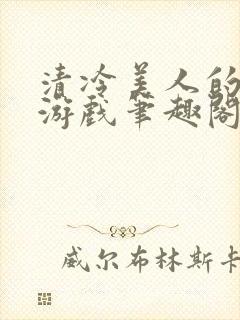 清冷美人的
游戏笔趣阁
威尔布林斯卡